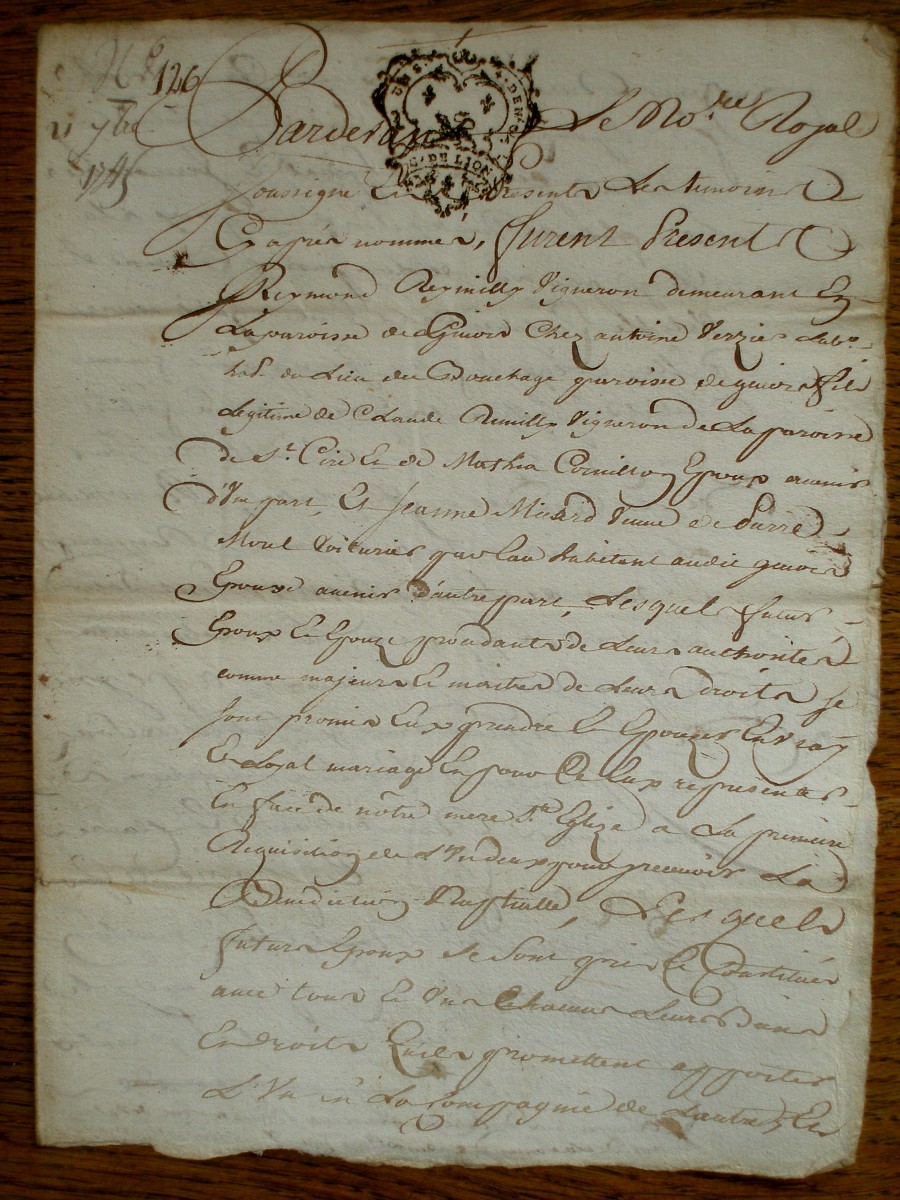 N.o 126
21 7bre
1745
Pardevant Le No.re Royal
DEN.
G. DE LION
Soussigné Et presents Les temoins
Cy aprés nommés, furent Presents
Reymond Remilly Vigneron demeurant En
La paroisse de Givors Chez antoine Verzier Lab.
hab. du Lieu du Bouchage paroisse de givors fils
Legitime de Claude Remilly Vigneron de La paroisse
de St. Cire Et de Mathia Cornillon Epoux avenir
d'Une part, Et Jeanne Micard Veuve de Pierre
Moul Voiturier par Eau habitant audit givors
Epouse avenir d'autre part, Lesquels futurs
Epoux Et Epouze procedants de Leurs authorités
comme majeurs Et maitres de Leurs Droits se
sont promis Eux prendre Et Epouzer En vray
Et Loyal mariage Et pour Ce Eux representer
En face de nôtre mere Ste Eglize a La premiere
Requisition de L'Un deux pour recevoir La
Benediction Nuptialle, Lesquels
futurs Epoux Se Sont pris Et Constitués
avec tous Et Uns Chacuns Leurs biens
Et droits Quils promettent apporter
L'Un en La Compagnie de Lautre, Et